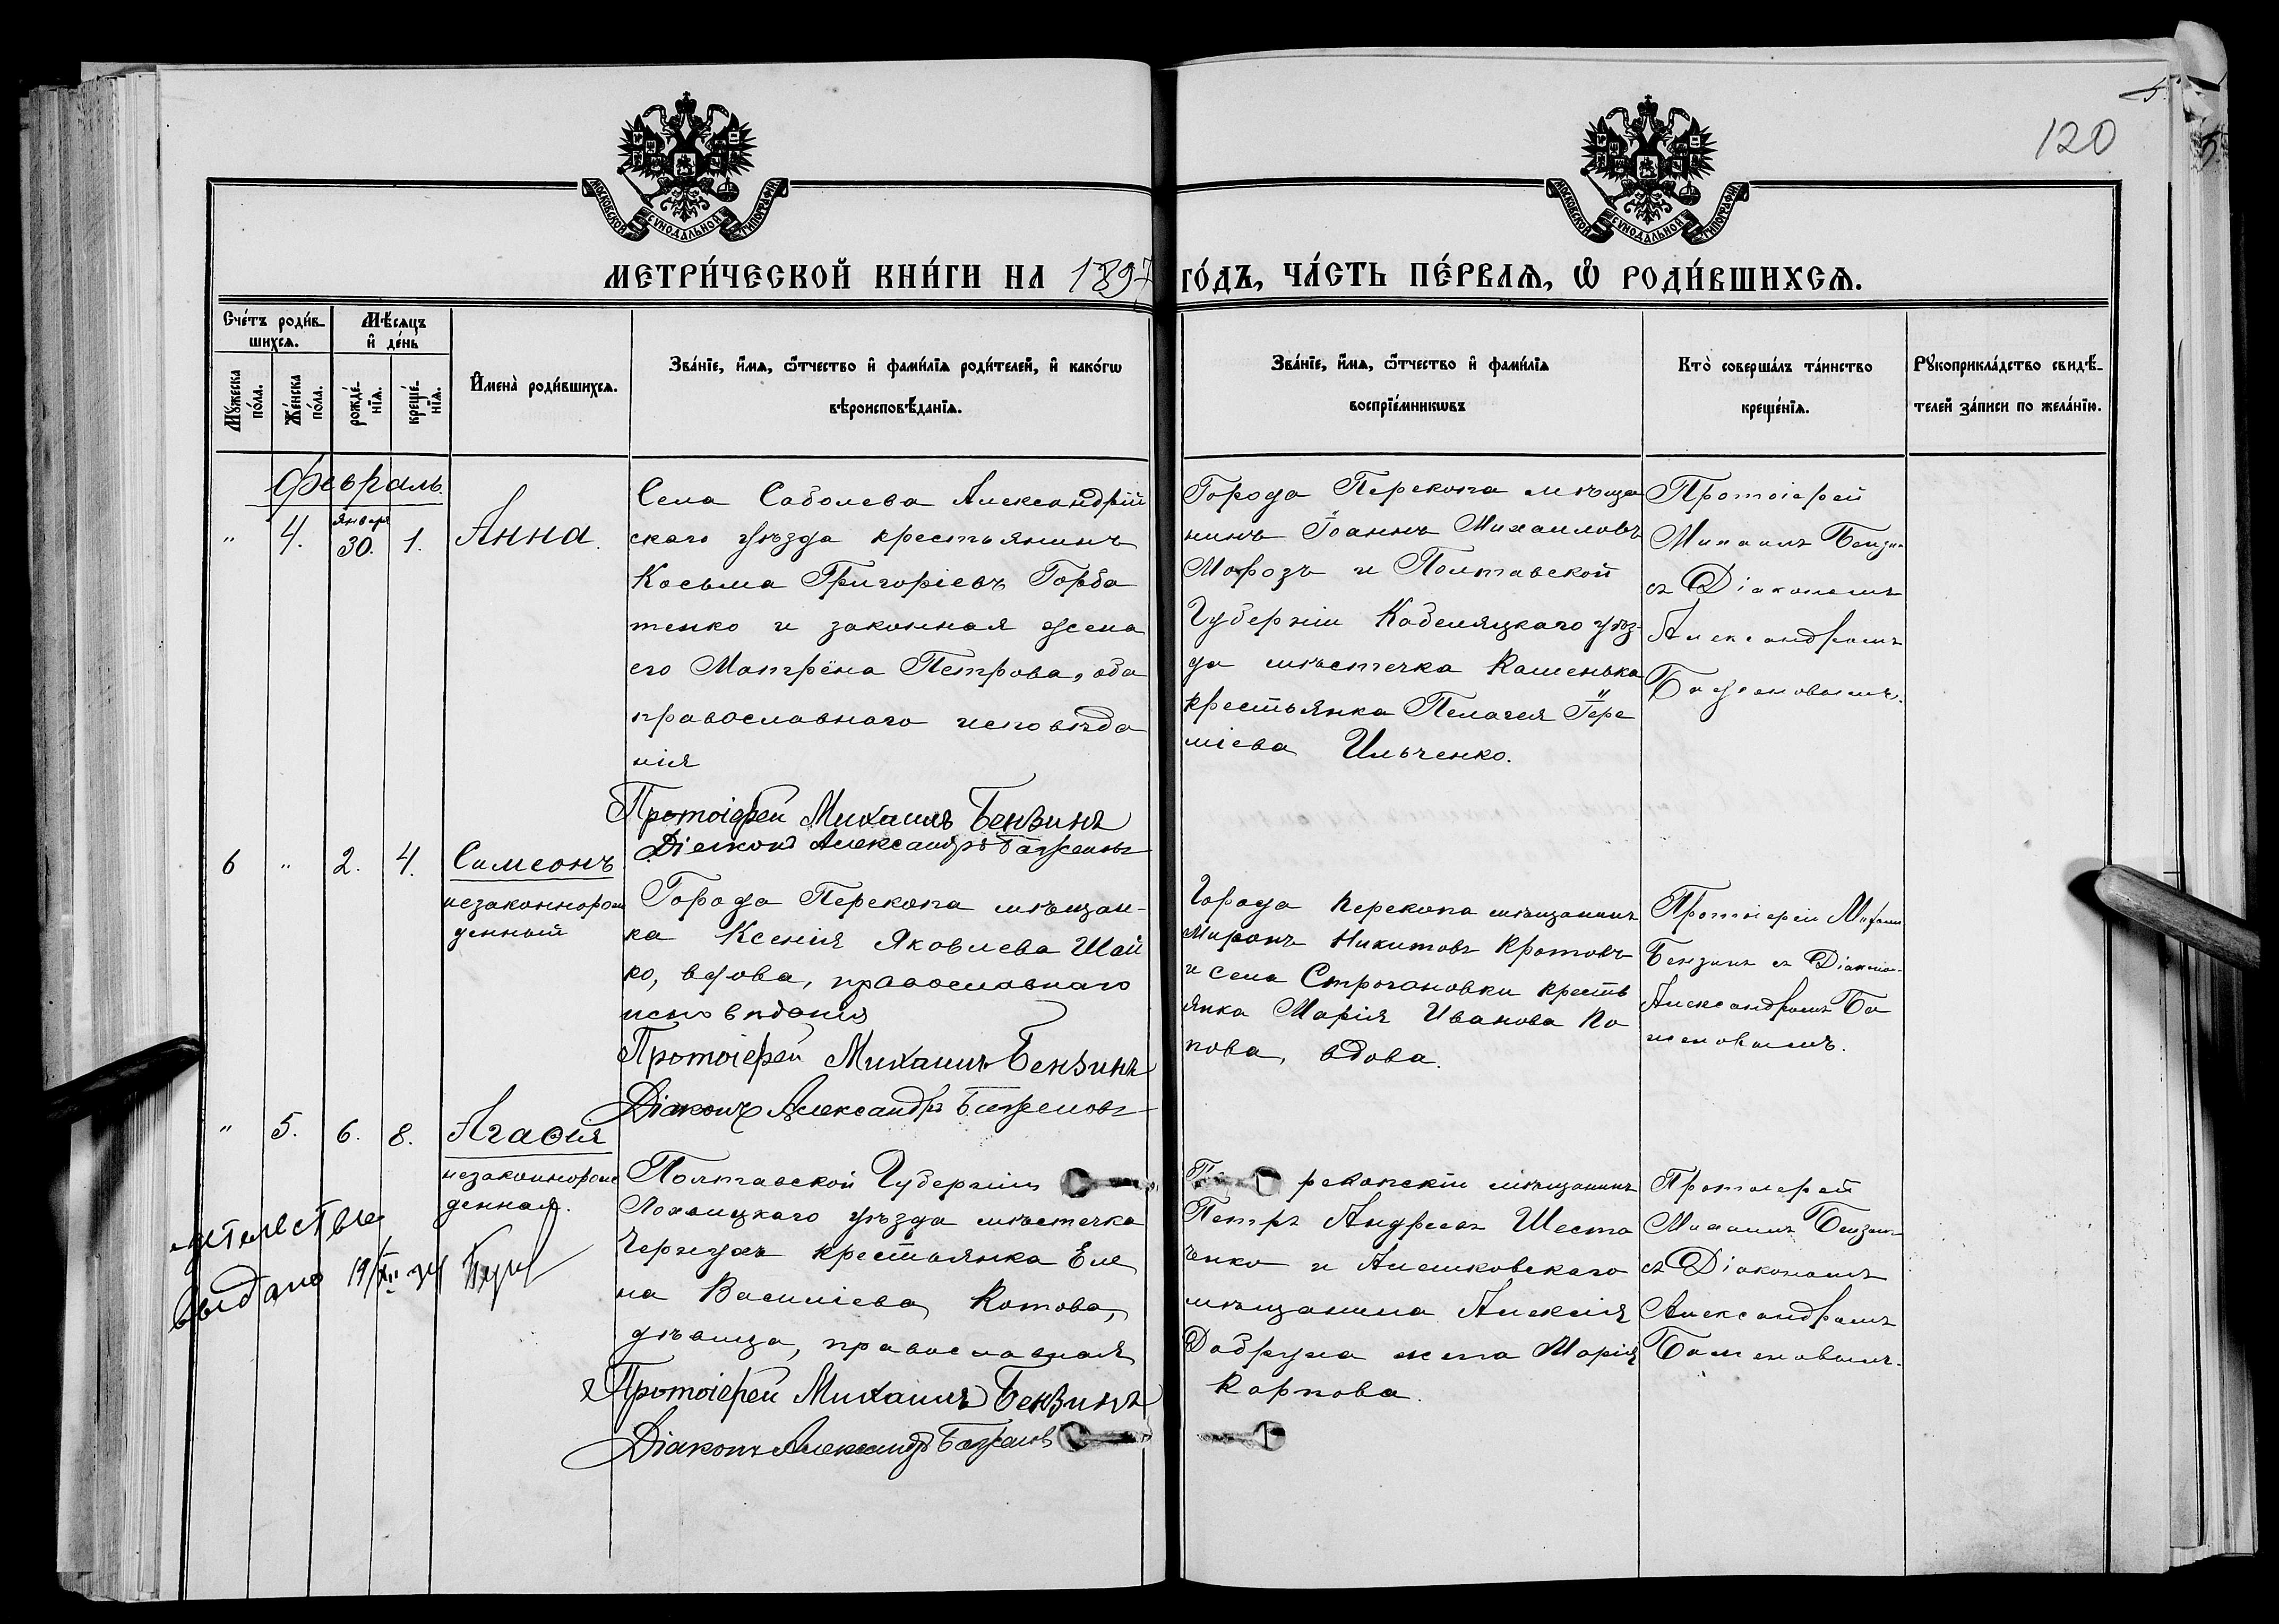 120
МОСКОВСКОЙ СУНОДАЛЬНОЙ ТИПОГРАФІИ
МОСКОВСКОЙ СУНОДАЛЬНОЙ ТИПОГРАФІИ
МЕТРИ́ЧЕСКОЙ КНИ́ГИ НА 1897 ГО́ДЪ, ЧА́СТЬ ПЕ́РВАѦ, Ѡ҆ РОДИ́ВШИХСѦ.
Счётъ роди́в-
шихсѧ.
Мѣ́сѧцъ
и҆ де́нь
Мꙋ́жеска
по́ла.
Же́нска
по́ла.
рожде́-
нїѧ.
креще́-
нїѧ.
И҆мена̀ роди́вшихсѧ.
Зва́нїе, и҆́мѧ, ѻ҆́тчество и҆ фами́лїѧ роди́телей, и҆ како́гѡ
вѣроисповѣ́данїѧ.
Зва́нїе, и҆́мѧ, ѻ҆́тчество и҆ фами́лїѧ
воспрїе́мникѡвъ
Кто̀ соверша́лъ та́инство
креще́нїѧ.
Рꙋкоприкла́дство свидѣ́-
телей за́писи по жела́нїю.
Февраль.
" 4. Января 30. 1. Анна.
Села Соболева Александрій
скаго уѣзда крестьянинъ
Косьма Григоріевъ Горба
тенко и законная жена
его Матрёна Петрова, оба
православнаго исповѣда
нія
Протоіерей Михаилъ Бензинъ
Діаконъ Александръ Баженовъ
Города Перекопа мѣща
нинъ Іоаннъ Михаиловъ
Морозъ и Полтавской
Губерніи Кобеляцкаго уѣз-
да мѣстечка Кашенька
крестьянка Пелагея Іере
міева Ильченко.
Протоіерей
Михаилъ Бензин
съ Діакономъ
Александромъ
Баженовымъ.
6 " 2. 4. Симеонъ
незаконнорож
денный
Города Перекопа мѣщан-
ка Ксенія Яковлева Шай
ко, вдова, православнаго
исповѣданія
Протоіерей Михаилъ Бензинъ
Діаконъ Александръ Баженовъ
Города Перекопа мѣщанинъ
Миронъ Никитовъ Кротовъ
и села Строгановки кресть
янка Марія Иванова По
пова, вдова.
Протоіерей Михаил
Бензинъ съ Діаконо-
Александромъ Ба
женовымъ.
" 5. 6. 8. Агаѳія
незаконнорож
денная.
Полтавской Губерніи
Лохвицкаго уѣзда мѣстечка
Чернухъ крестьянка Еле
на Василіева Котова,
дѣвица, православная
Протоіерей Михаилъ Бензинъ
Діаконъ Александръ Баженов
П рекопскій мѣщанинъ
Петръ Андреевъ Шеста
ченко и Алешковскаго
мѣщанина Алексія
Добруна жена Марія
Карпова.
Протоіерей
Михаилъ Бензинъ
съ Діакономъ
Александромъ
Баженовымъ.
выдано 19/XII